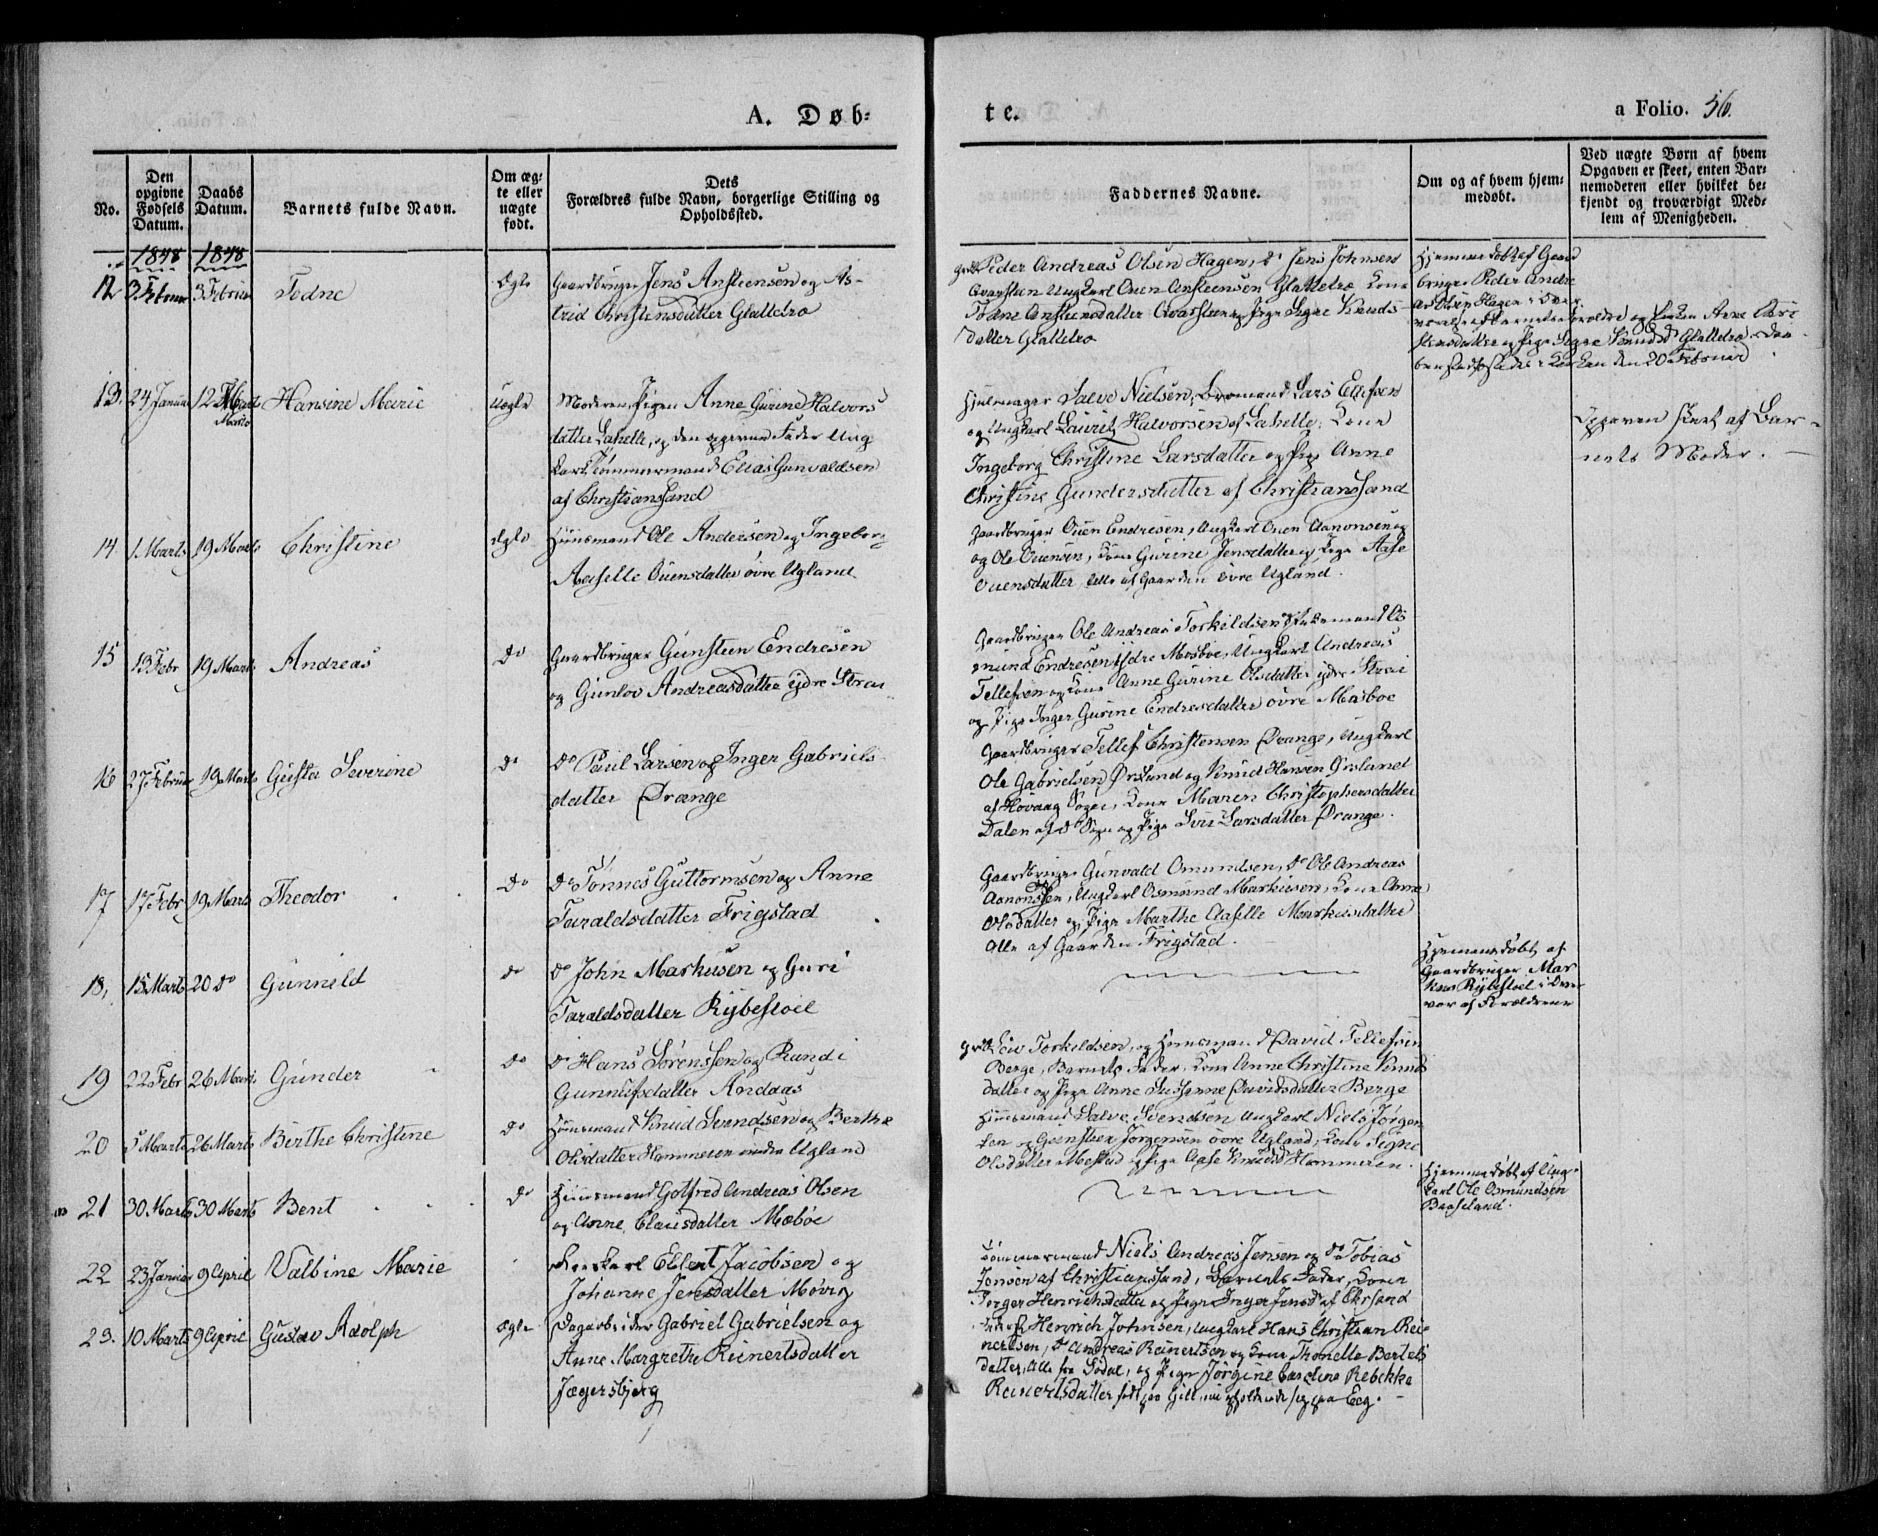 A. Døb-
te.
a Folio. 56.
No.
Den opgivne Fødsels Datum.
Daabs Datum.
Barnets fulde Navn.
Om ægte eller uægte født.
Dets Forældres fulde Navn, borgerlige Stilling og Opholdssted.
Faddernes Navne.
Om og af hvem hjemmedøbt.
Ved uægte Børn af hvem Opgaven er skeet, enten Barnemoderen eller hvilket bekjendt og troværdigt Medlem af Menigheden.
1848 1848
12 Todne Ægte Gaardbruger Jens Ansteensen og As-
trid Christensdatter Glattetræ
Peder Andreas Olsen Hagen, do Jens Johnsen
Qvarsten Ungkarl Ouen Ansteensen Glattetræ Kone
Todne Ansteensdatter Qvarsteen og Pige Signe Knuds-
datter Glattetræ
Hjemmedøbt af Gaard
bruger Peder Andre
as Olsen Hagen i Over
13. 24 Januar 12 Marts Hansine Marie Uægte Moderen, Pigen Anne Gurine Halvors
datter Lahelle, og den opgivne Fader Ung
karl Tømmermand Elias Gunvaldsen
af Christianssand
Hjulmager Salve Nielsen, Lars Ellefsen
og Ungkarl Lauritz Halvorsen af Lahelle, Kone
Ingeborg Christine Larsdatter og Pige Anne
Christine Gundersdatter af Christianssand
Opgaven skeet af Bar-
nets Moder.
14. 1 Marts 19 Marts Christine Ægte Huusmand Ole Andersen og Ingeborg
Aaselle Ouensdatter øvre Ugland
Gaardbruger Ouen Endresen, Ungkarl Ouen Aanonsen og
og Ole Ouensen, Kone Gurine Jensdatter og Pige Aase
Ouensdatter, alle af Gaarden øvre Ugland.
15 13 Febr 19 Marts Andreas do Gaardbruger Gunsteen Endresen
og Gunlov Andreasdatter ydre Strai
Gaardbruger Ole Andreas Torkildsen Os
mund Endresen ydre Mosboe, Ungkarl Andreas
Tellefsen og Kone Anne Gurine Olsdatter ydre Strai
og Pige Inger Gurine Endresdatter øvre Mosboe
16 27 Februar 19 Marts Gusta Severine do do Paul Larsen og Inger Gabriels
datter Drange
Gaardbruger Tellef Christensen Drange, Ungkarl
Ole Gabrielsen Ørsland og Knud Hansen Ørsland
af Høvaag Sogn, Kone Maren Christophersdatter
Dalen af do Sogn og Pige Siri Larsdatter Drange.
17 17 Febr 19 Marts Theodor do do Tønnes Guttormsen og Anne
Taraldsdatter Frigstad
Gaardbruger Gunvald Osmundsen, do Ole Andreas
Aanonsen, Ungkarl Osmund Markusen, Kone Anne
Olsdatter og Pige Marthe Aaselle Markusdatter
Alle af Gaarden Frigstad.
18, 15 Marts 20 do Gunneld do do John Markusen og Guri
Taraldsdatter Rybestøel
Hjemmedøbt af
Gaardbruger Mar
kus Rybestøel i Over
vær af Forældrene
19 22 Febr 26 Marts Gunder do do Hans Sørenssen og Randi
Gunnulfsdatter Andaas
Torkildsen, og Huusmand David Tellefsen
Berge, Barnets Fader, Kone Anne Christine Knuds
datter og Pige Anne Susanne Davidsdatter Berge
20 5 Marts 26 Marts Birthe Christine do Huusmand Knud Svendsen og Berthe
Olsdatter Hammeren under Ugland
Huusmand Salve Svendsen, Ungkarl Niels Jørgen
sen og Gunsteen Jørgensen øvre Ugland, Kone Signe
Olsdatter Mestad og Pige Aase Knudsd Hammeren.
21 30 Marts 30 Marts Bent do Huusmand Gotfred Andreas Olsen
og Anne Clausdatter Mæbøe
Hjemmedøbt af Ung-
karl Ole Osmundsen
Baaseland.
22 23 Januar 9 April Valbine Marie Ellert Jacobsen og
Johanne Jensdatter Møvig
Tømmermand Niels Andreas Jensen og do Tobias
Jensen af Christianssand, Barnets Fader, Kone
Torger Henrichsdatter og Pige Inger Jensd af Chrsand
23. 10 Marts 9 April Gustav Adolph Ægte Dagarbeider Gabriel Gabrielsen og
Anne Margrethe Reinertsdatter
Jægersbjerg
Henrich Johnsen, Ungkarl Hans Christian Rei-
nertsen, do Andreas Reinertsen og Kone Thonette Bertels
datter, Alle fra Sødal, og Pige Jørgine Caroline Rebekke
Reinertsdatter født paa Gill, nu opholdende sig paa Eeg.